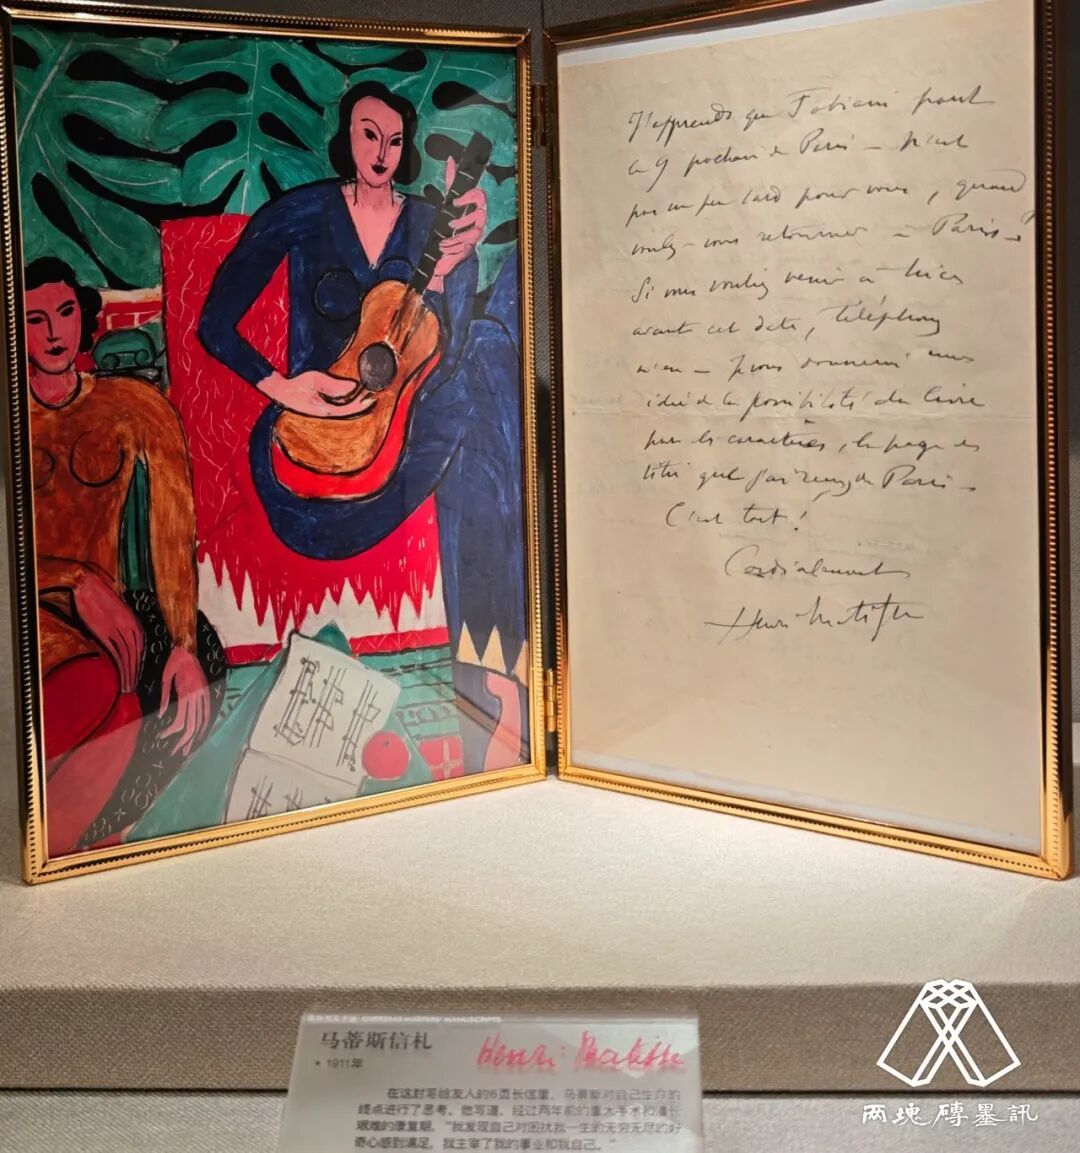 J'apprends que Fabiani part
le 9 prochain de Paris – n'est
pas un peu tard pour vous, quand
voulez-vous retourner à Paris – ?
Si vous vouliez venir à Nice
avant cet date, téléphonez
m'en – vous donnerai une
idée de la possibilité du livre
par les caractères, la page de
titre que j'ai reçu de Paris –
C'est tout !
Cordialement
Henri Matisse
OVERSEAS MASTERS' MANUSCRIPTS
马蒂斯信札
Henri Matisse
• 1911年
在这封写给友人的6页长信里，马蒂斯对自己生命的
终点进行了思考。他写道，经过两年前的重大手术和漫长
艰难的康复期，“我发现自己对困扰我一生的无穷无尽的好
奇心感到满足，我主宰了我的事业和我自己。”
两塊磚墨訊